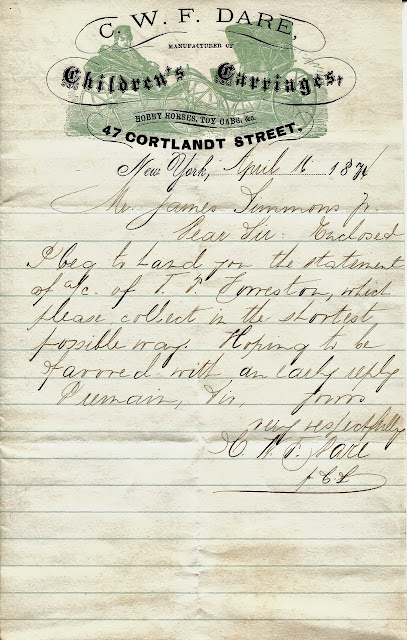 C. W. F. DARE,
MANUFACTURER OF
Children's Carriages,
HOBBY HORSES, TOY CABS, &c.
47 CORTLANDT STREET.
New York, April 16 187
Mr. James Timmons Jr
Dear Sir: Enclosed
I beg to hand you the statement
of a/c. of T. F. which
please collect in the shortest
possible way. Hoping to be
favored with an early reply
I remain, Sir, yours
very respectfully
C W F. Dare